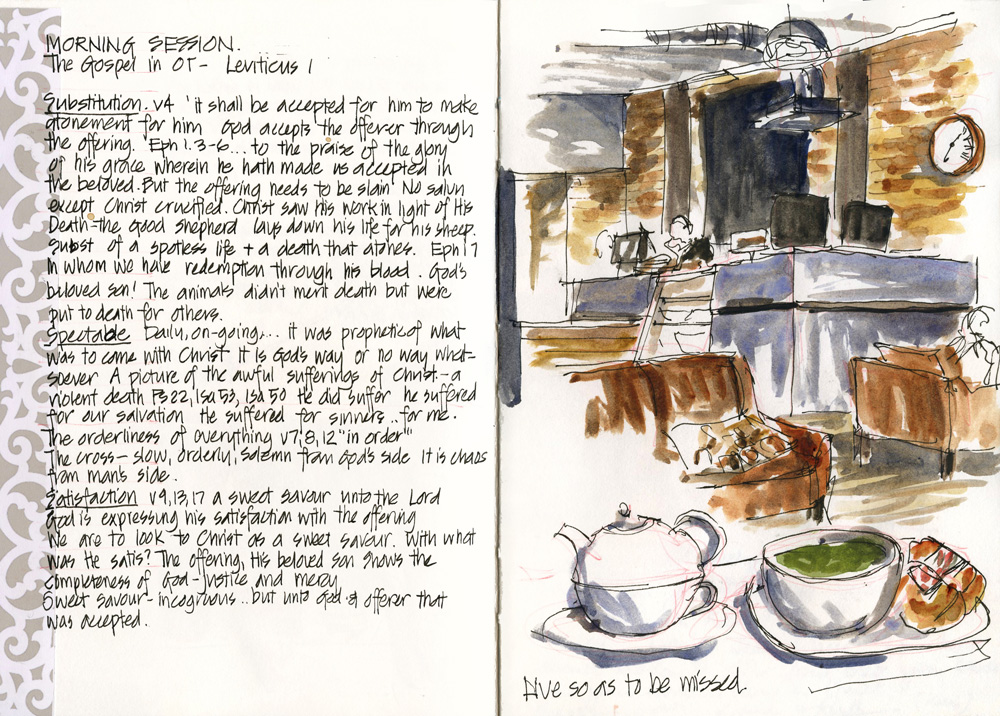 MORNING SESSION.
The Gospel in OT - Leviticus 1
Substitution. v4 'it shall be accepted for him to make
atonement for him God accepts the offer-er through
the offering. 'Eph 1.3-6... to the praise of the glory
of his grace wherein he hath made us accepted in
the beloved. But the offering needs to be slain' No salvn
except Christ crucified. Christ saw His work in light of His
Death - the Good shepherd lays down his life for his sheep.
Subst of a spotless life + a death that atones. Eph 1 7
In whom we have redemption through his blood. God's
beloved son! The animals didn't merit death but were
put to death for others.
Spectacle Daily, on-going... it was prophetic of what
was to come with Christ It is God's way or no way what-
soever A picture of the awful sufferings of Christ - a
violent death Ps 22, Isa 53, Isa 50 He did suffer he suffered
for our salvation He suffered for sinners.. for me.
The orderliness of everything v7, 8, 12 "in order"
The cross - slow, orderly, solemn from God's side It is chaos
from man's side.
Satisfaction v9, 13, 17 a sweet savour unto the Lord
God is expressing his satisfaction with the offering
We are to look to Christ as a sweet savour. With what
was He satis? The offering, His beloved son shows the
completeness of God - justice and mercy
Sweet savour - incogruous.. but unto God offerer that
was accepted.
Live so as to be missed.